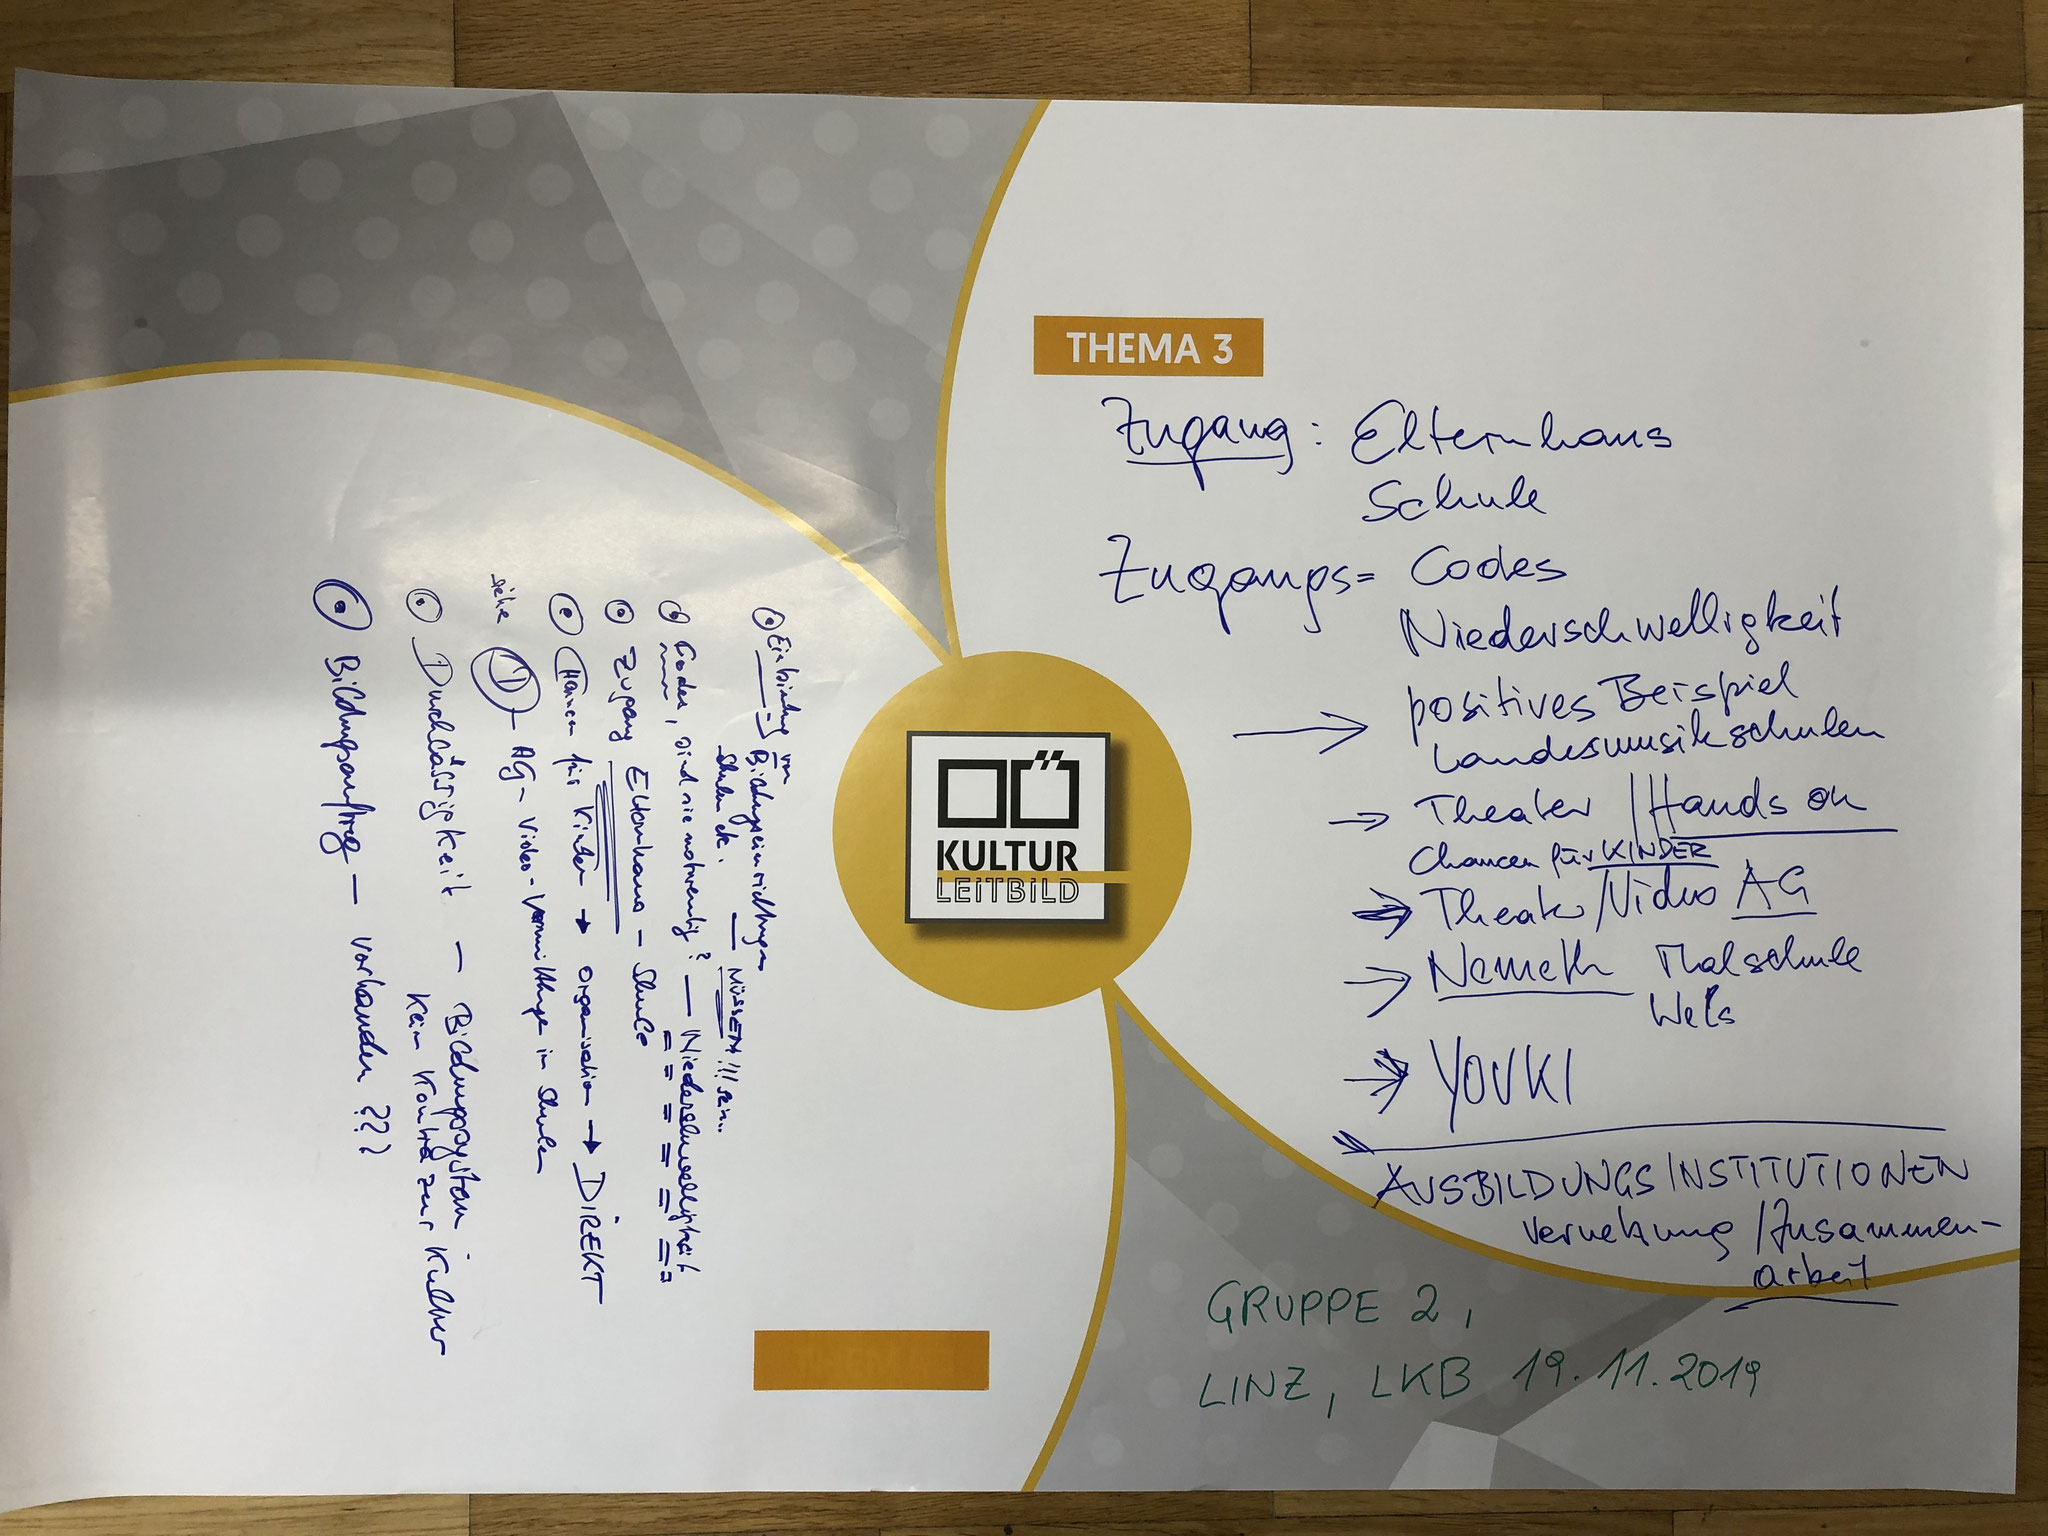 THEMA 3
Zugang: Elternhaus
Schule
Zugangs= Codes
Niederschwelligkeit
→ positives Beispiel
Landesmusikschulen
→ Theater / Hands on
Chancen für KINDER
→ Theater/Video AG
→ Nemeth Malschule
Wels
→ YOUKI
AUSBILDUNGSINSTITUTIONEN
Vernetzung / Zusammen-
arbeit
OÖ
KULTUR
LEiTBiLD
GRUPPE 2,
LINZ, LKB 19.11.2019
Einbindung von
Bildungseinrichtungen
Schulen etc. — MÜSSEN!!! sein...
Codes, sind sie notwendig? — Niederschwelligkeit
Zugang Elternhaus - Schule
Chancen für Kinder → Organisation → DIREKT
siehe ① - AG - Video-Vermittlung in Schulen
Durchlässigkeit — Bildungssystem
kein zur Kultur
Bildungsauftrag — vorhanden ???